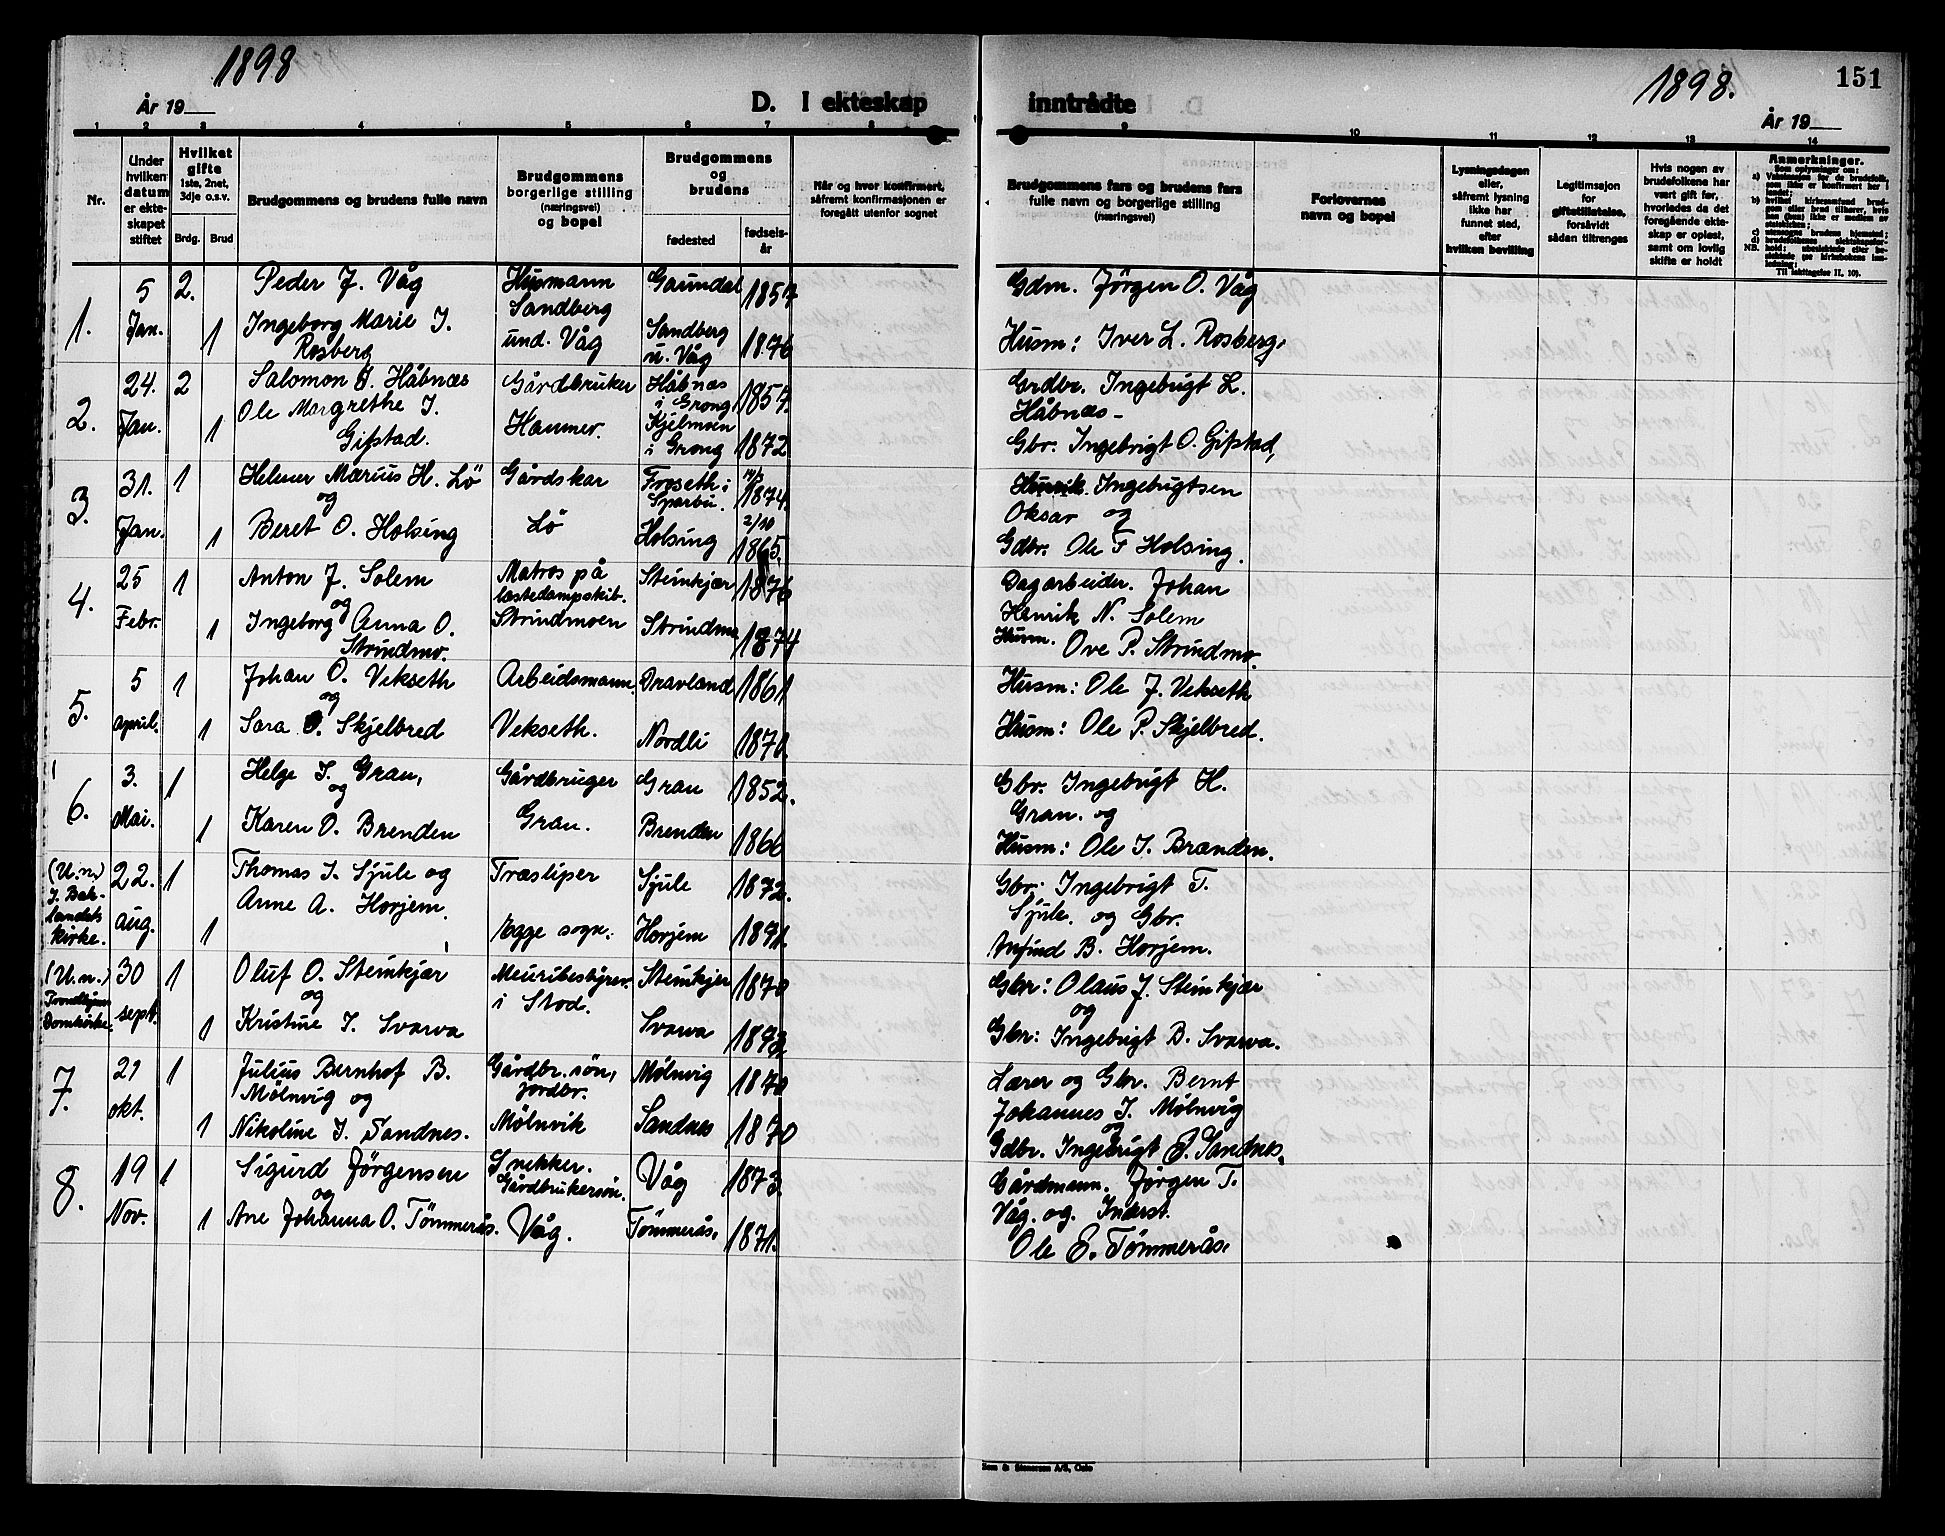 1898
1898.
151
År 19
D. I ekteskap inntrådte
År 19
1 2 3 4 5 6 7 8 9 10 11 12 13 14
Nr.
Under hvilken datum er ekteskapet stiftet
Hvilket gifte 1ste, 2net, 3dje o.s.v.
Brdg. Brud
Brudgommens og brudens fulle navn
Brudgommens borgerlige stilling (næringsvei) og bopel
Brudgommens og brudens
fødested
fødselsår
Når og hvor konfirmert, såfremt konfirmasjonen er foregått utenfor sognet
Brudgommens fars og brudens fars fulle navn og borgerlige stilling (næringsvei)
Forlovernes navn og bopel
Lysningsdagen eller, såfremt lysning ikke har funnet sted, efter hvilken bevilling
Legitimasjon for giftetillatelse, forsåvidt sådan tiltrenges
Hvis nogen av brudefolkene har vært gift før, hvorledes da det foregående ekteskap er opløst, samt om lovlig skifte er holdt
Anmerkninger.
1. 5 Jan. 2. Peder J. Våg Husmann Gaundal 1857 Gdm. Jörgen O. Våg
1 Ingeborg Marie I. Rosberg Sandberg und. Våg Sandberg u. Våg 1876 Husm: Iver L. Rosberg,
2. 24. Jan. 2 Salomon J. Håbnæs Gårdbruker Håbnæs i Grong 1857. Grdbr. Ingebrigt L. Håbnæs-
1 Ole Margrethe I. Gifstad. Hammer. Kjelmoen i Grong 1872 Gbr. Ingebrigt O. Gifstad,
3. 31. Jan. 1 Helmer Marius H. Lö og Gårdskar Froseth i Sparbu. 1874. Henrik Ingebrigtsen Oksar og
1 Beret O. Holsing Lö Holsing 2/10 1865. Gdbr. Ole F Holsing.
4. 25 Febr. 1 Anton J. Solem og Matros på lastedampskib. Steinkjær 1876 Dagarbeider. Johan Henrik N. Solem
1 Ingeborg Anna O. Strindmo. Strindmoen Strindmo 1874 Husm. Ove P. Strindmo.
5. 5 april. 1 Johan O. Vekseth og Arbeidsmann. Dravland 1861 Husm: Ole J. Vekseth
1 Sara O. Skjelbred Vekseth. Nordli 1870. Husm: Ole P. Skjelbred.
6. 3. Mai. 1 Helge I. Gran, og Gårdbruger Gran 1852. Gbr. Ingebrigt H. Gran. og
1 Karen O. Brenden Gran. Brenden 1866 Husm: Ole I. Brænden.
(U.n.) I. Baklandets kirke. 22. aug. 1 Thomas I. Sjule og Træsliper Sjule 1872. Gbr: Ingebrigt T. Sjule. og Gbr.
1 Anne A. Horjem. Egge sogn. Horjem 1871. Anfind B. Horjem.
(U.n.) Trondhjem Domkirke. 30 sept. 1 Oluf O. Steinkjær og Meieribestyrer i Stod. Steinkjer 1870 Gbr: Olaus J. Steinkjær og
1 Kristine I. Svarva Svarva 1873 Gbr: Ingebrigt B. Svarva.
7. 21 okt. 1 Julius Bernhof B. Mölnvig og Gårdbr. sön, Jordbr. Mølnvig 1870 Lærer og Gbr. Bernt Johannes I. Mølnvig og
1 Nikoline I. Sandnes. Mølnvik Sandnes 1870 Gdbr. Ingebrigt E. Sandnes.
8. 19 Nov. 1 Sigurd Jørgensen og Snekker. Gårdbrukersön. Våg 1873. Gårdmann. Jørgen T. Våg. og. Inderst.
1 Ane Johanna O. Tömmerås. Våg. Tömmerås. 1871. Ole E. Tömmerås.
Sem & Stenersen A/S, Oslo